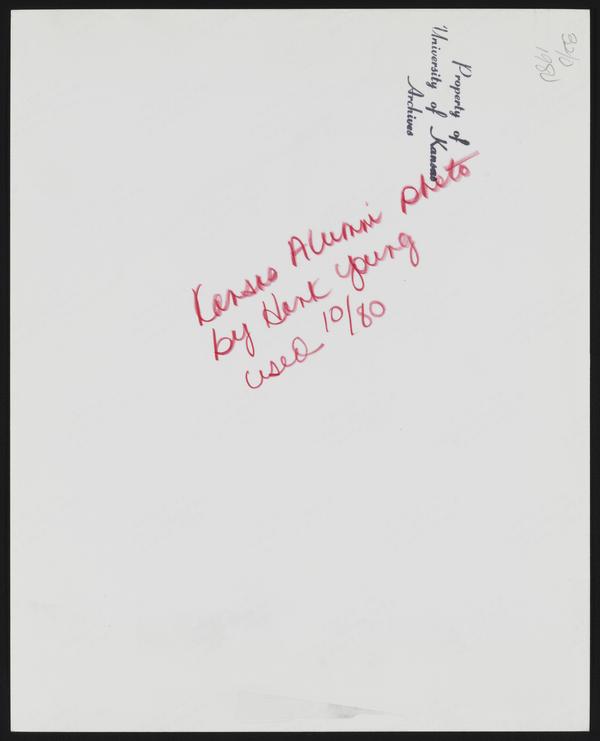 Property of
University of Kansas
Archives
32/0
1980
Kansas Alumni photo
by Hank Young
used 10/80